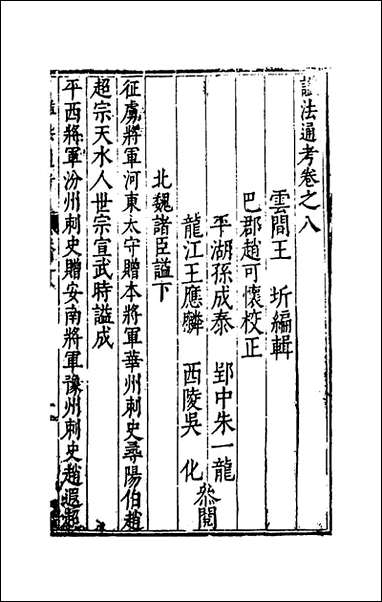 諡法通考卷之八
雲間王　圻編輯
巴郡趙可懷校正
平湖孫成泰　郢中朱一龍
龍江王應麟　西陵吳　化　叅閱
北魏諸臣諡下
征虜將軍河東太守贈本將軍華州刺史尋陽伯趙
超宗天水人世宗宣武時諡成
平西將軍汾州刺史贈安南將軍豫州刺史趙遐超